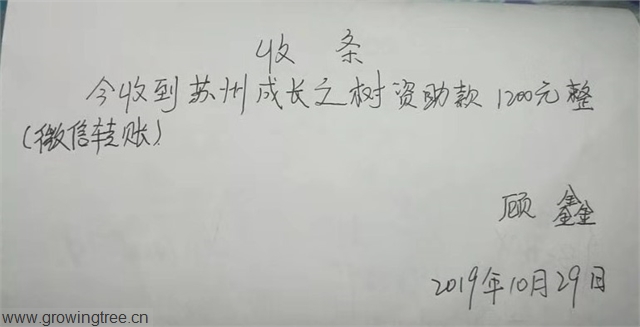 收 条
今收到苏州成长之树资助款1200元整
(微信转账)
顾 鑫
2019年10月29日
www.growingtree.cn